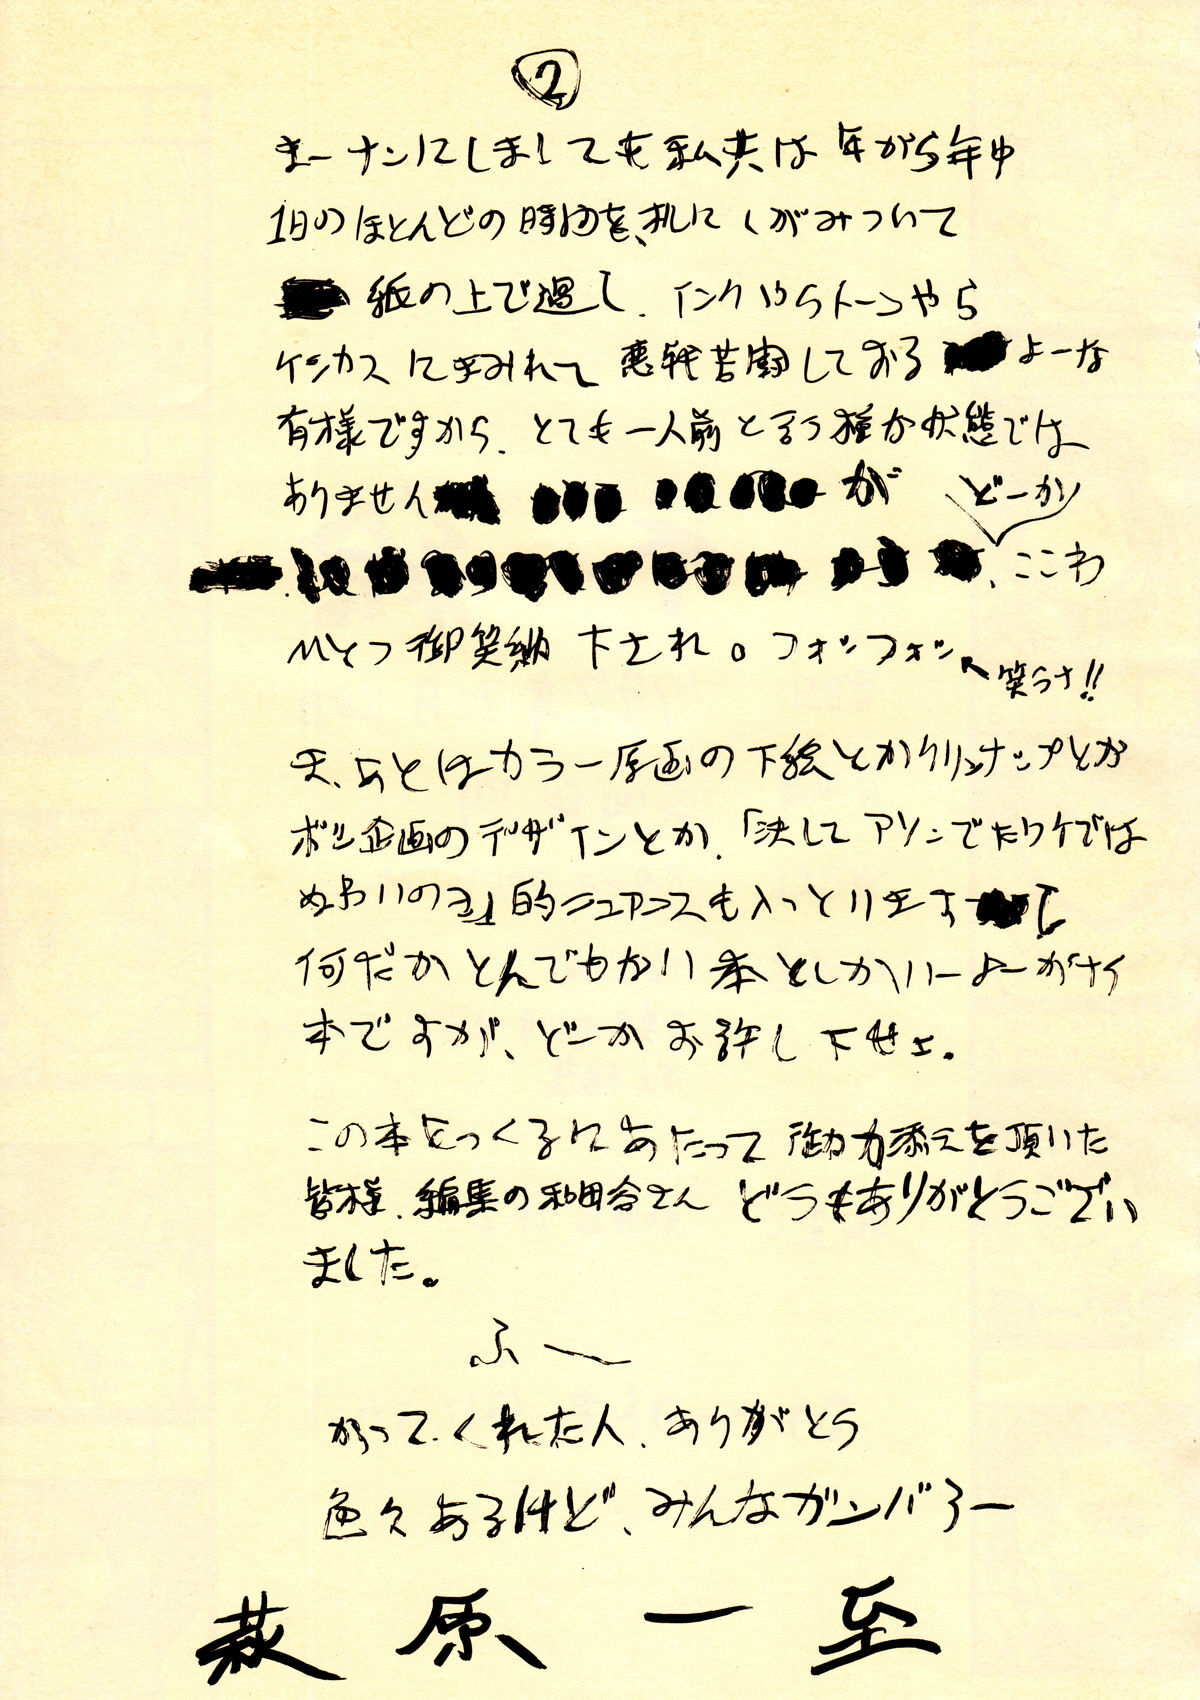 ②
まーナンにしましても私共は年がら年中
1日のほとんどの時間を、机にくがみついて
紙の上で過し、インクやらトーンやら
ケシカスにまみれて悪戦苦闘しておるよーな
有様ですから、とても一人前と言う種な状態では
ありませんが どーか
、ここわ
ひとつ御笑納下され。フォンフォン ←笑うナ!!
ま、あとはカラー原画の下絵とかクリンナップとか
ボツ企画のデザインとか、「決してアソンでたワケでは
ぬあいのヨ」的ニュアンスも入っとりまして
何だかとんでもない本としかいーよーがナイ
本ですが、どーかお許し下せェ。
この本をつくるにあたって御力添えを頂いた
皆様、編集の和田さん どうもありがとうござい
ました。
ふー
かってくれた人、ありがとう
色々あるけど、みんなガンバろー
萩原一至